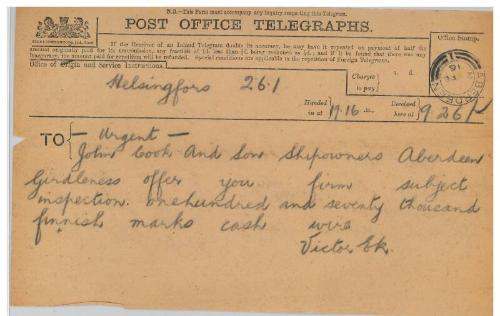 N.B.—This Form must accompany any inquiry respecting this Telegram.
POST OFFICE TELEGRAPHS.
If the Receiver of an Inland Telegram doubts its accuracy, he may have it repeated on payment of half the
amount originally paid for its transmission, any fraction of 1d. less than ½d. being reckoned as ½d.; and if it be found that there was any
inaccuracy, the amount paid for repetition will be refunded. Special conditions are applicable to the repetition of Foreign Telegrams.
Office Stamp.
ABERDEEN
Office of Origin and Service Instructions.
Charges
to pay
s. d.
Helsingfors 261
Handed
in at
19.16
Received
here at
9 26
TO
- Urgent -
John Cook And Son Shipowners Aberdeen
Girdleness offer you firm subject
inspection. onehundred and seventy thousand
finnish marks cash wire
Victor Ek.